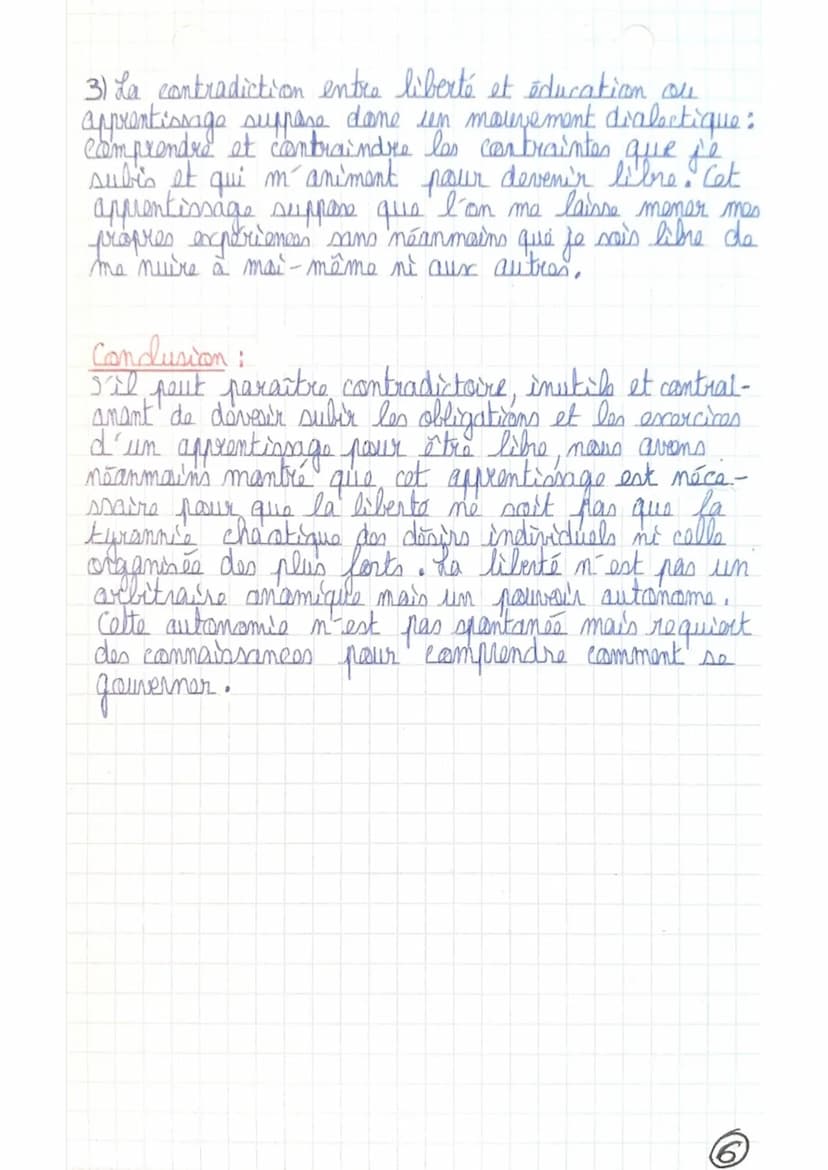 3) La contradiction entre liberté et éducation ou
apprentissage suppose donc un mouvement dialectique :
comprendre et contraindre les contraintes que je
subis et qui m'animent pour devenir libre. Cet
apprentissage suppose que l'on me laisse mener mes
propres expériences sans néanmoins que je sois libre de
me nuire à moi-même ni aux autres.
Conclusion :
S'il peut paraître contradictoire, inutile et contrai-
gnant de devoir subir les obligations et les exercices
d'un apprentissage pour être libre, nous avons
néanmoins montré que cet apprentissage est néce-
ssaire pour que la liberté ne soit pas que la
tyrannie chaotique des désirs individuels ni celle
organisée des plus forts. La liberté n'est pas un
arbitraire anomique mais un pouvoir autonome.
Cette autonomie n'est pas spontanée mais requiert
des connaissances pour comprendre comment se
gouverner.
6